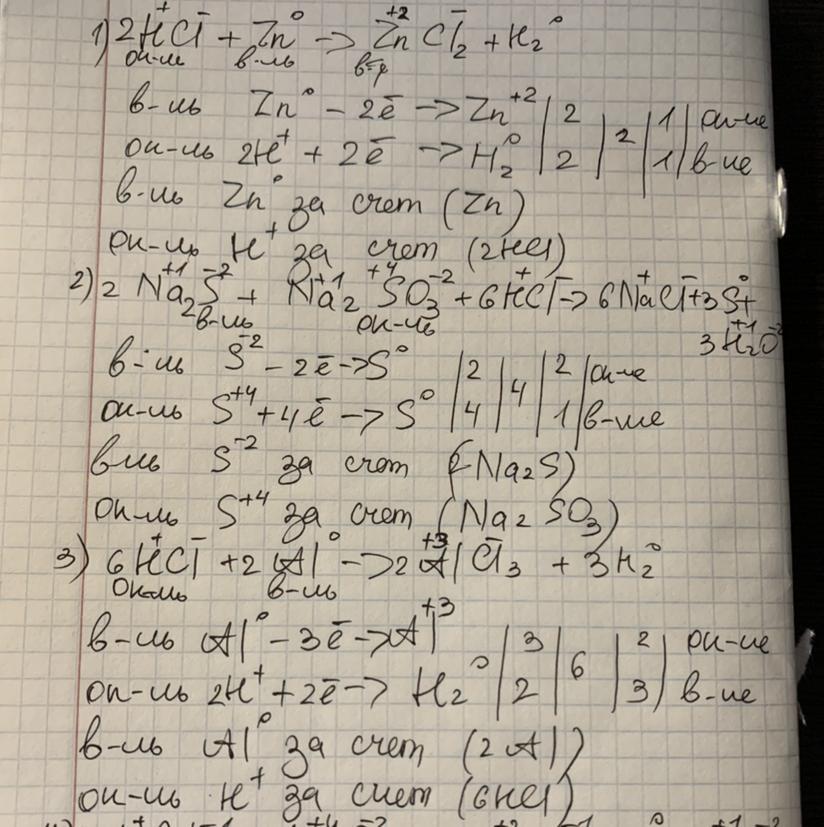 1) 2H⁺Cl⁻ + Zn⁰ -> Zn⁺²Cl₂⁻ + H₂⁰
ок-ль в-ль
в-ль Zn⁰ - 2ē -> Zn⁺² | 2 | 2 | 1 | ок-ие
ок-ль 2H⁺ + 2ē -> H₂⁰ | 2 | | 1 | в-ие
в-ль Zn⁰ за счет (Zn)
ок-ль H⁺ за счет (2HCl)
2) 2 Na₂⁺¹S⁻² + Na₂⁺¹S⁺⁴O₃⁻² + 6H⁺Cl⁻ -> 6Na⁺Cl⁻ + 3S⁰ +
в-ль ок-ль 3H₂⁺¹O⁻²
в-ль S⁻² - 2ē -> S⁰ | 2 | 4 | 2 | ок-ие
ок-ль S⁺⁴ + 4ē -> S⁰ | 4 | | 1 | в-ние
в-ль S⁻² за счет (2Na₂S)
ок-ль S⁺⁴ за счет (Na₂SO₃)
3) 6H⁺Cl⁻ + 2Al⁰ -> 2Al⁺³Cl₃⁻ + 3H₂⁰
ок-ль в-ль
в-ль Al⁰ - 3ē -> Al⁺³ | 3 | 6 | 2 | ок-ие
ок-ль 2H⁺ + 2ē -> H₂⁰ | 2 | | 3 | в-ие
в-ль Al⁰ за счет (2Al)
ок-ль H⁺ за счет (6HCl)